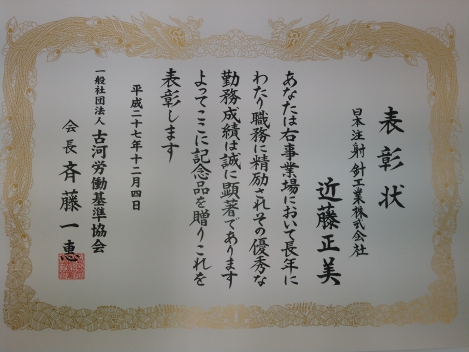 表彰状
日本注射針工業株式会社
近藤正美
あなたは右事業場において長年に
わたり職務に精励されその優秀な
勤務成績は誠に顕著であります
よってここに記念品を贈りこれを
表彰します
平成二十七年十二月四日
一般社団法人 古河労働基準協会
会長 斉藤一惠